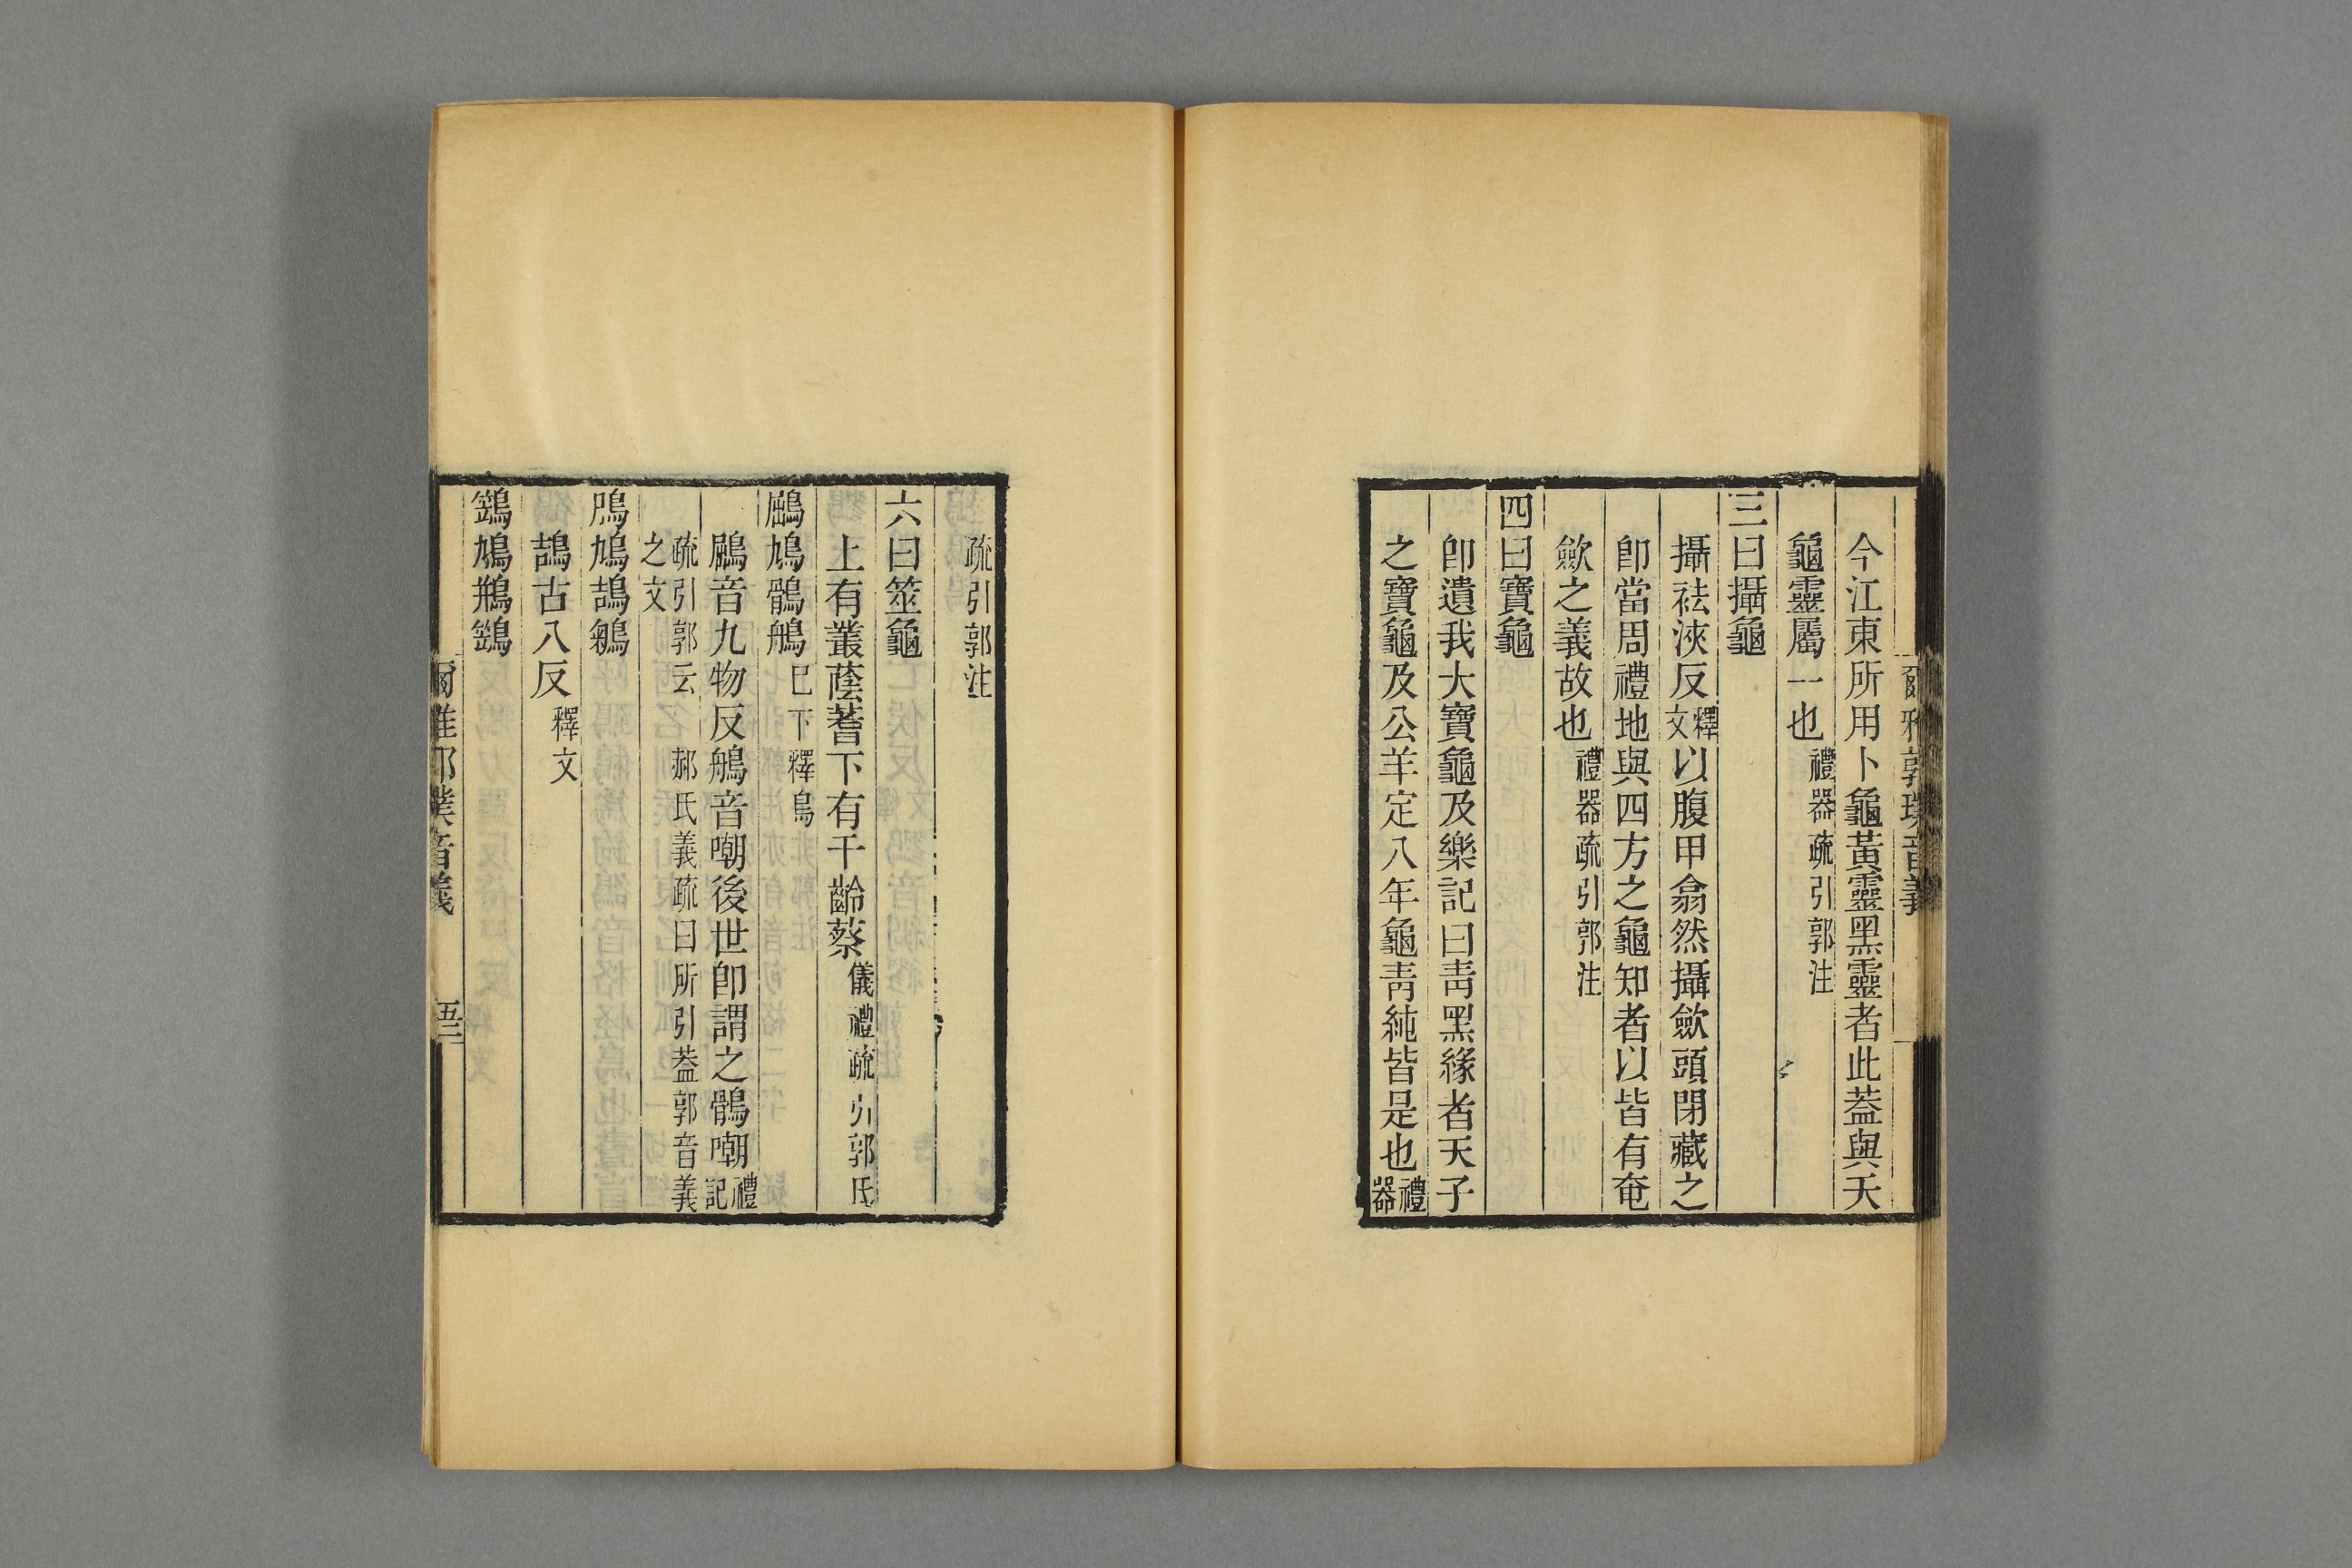 今江東所用卜龜黃靈黑靈者此葢與天
龜靈屬一也禮器疏引郭注
三曰攝龜
攝袪浹反釋文以腹甲翕然攝歛頭閉藏之
卽當周禮地與四方之龜知者以皆有奄
歛之義故也禮器疏引郭注
四曰寶龜
卽遺我大寶龜及樂記曰靑黑緣者天子
之寶龜及公羊定八年龜靑純皆是也禮器
疏引郭注
六曰筮龜
上有叢蓍下有千齡蔡儀禮疏引郭氏
鶌鳩鶻鵃已下釋鳥
鶌音九物反鵃音嘲後世卽謂之鶻嘲禮記
疏引郭云 郝氏義疏曰所引葢郭音義
之文
鳲鳩鴶鵴
鴶古八反釋文
鷑鳩鵧鷑
爾雅郭璞音義